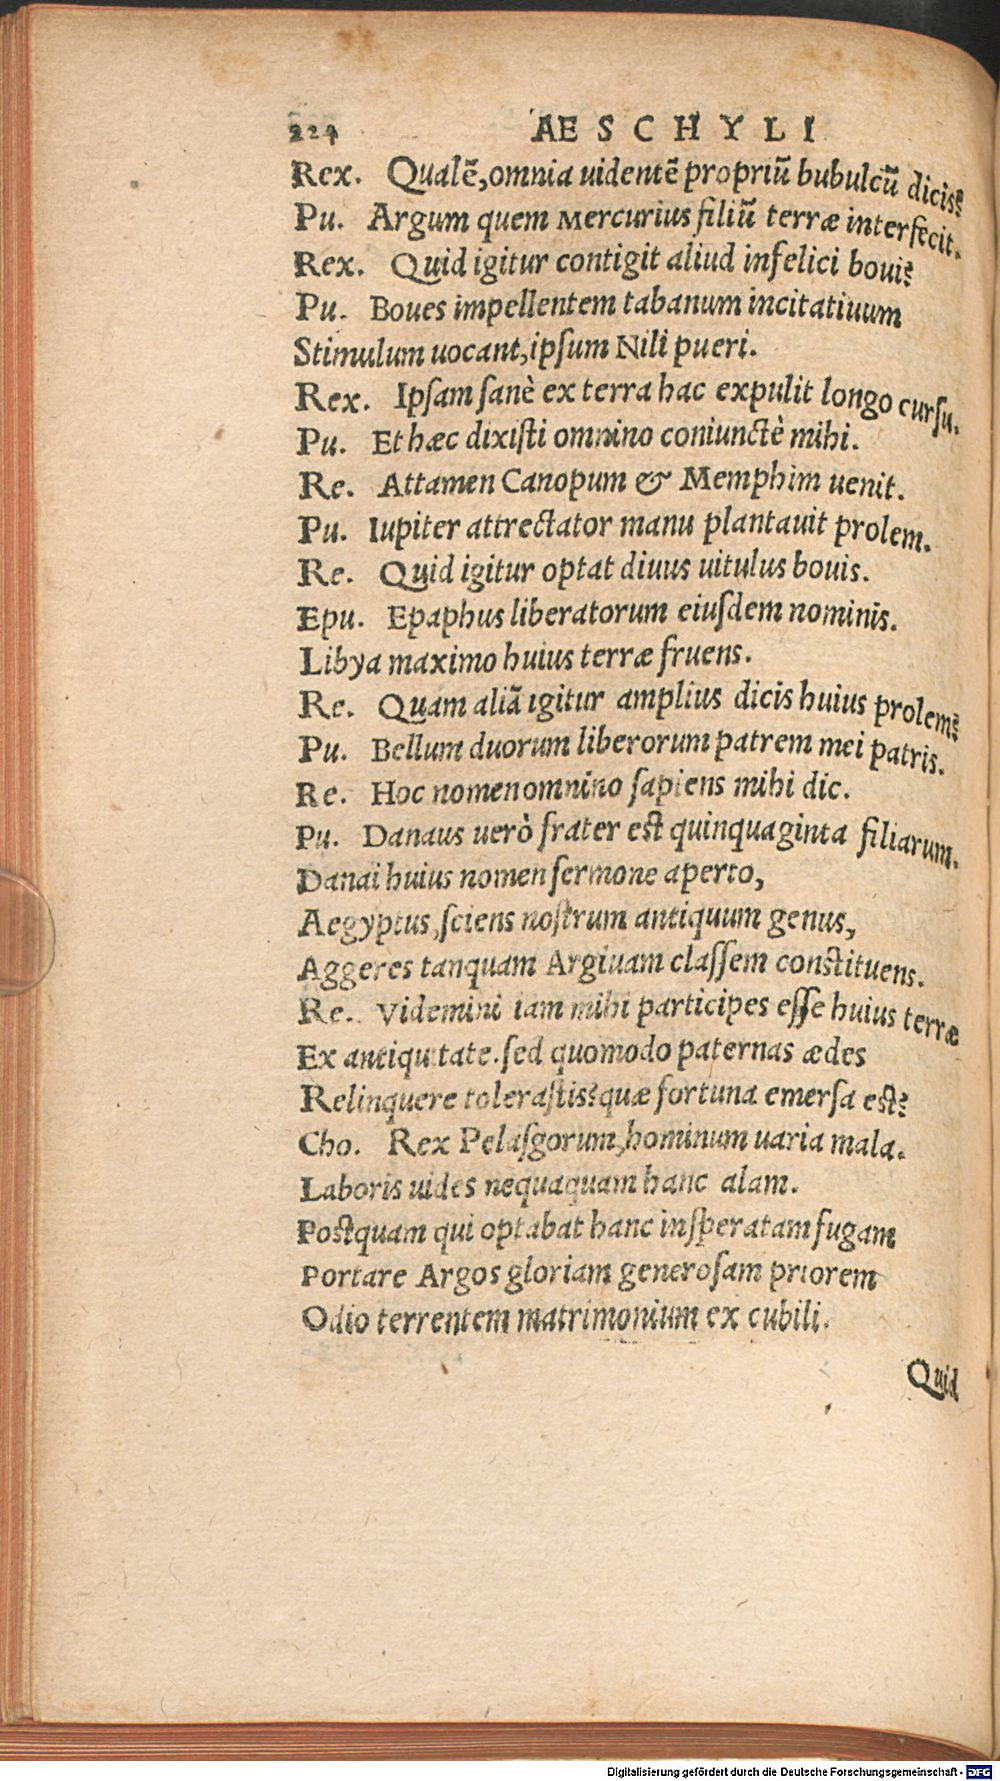 224 AESCHYLI
Rex. Qualē, omnia uidentē propriū bubulcū dicis?
Pu. Argum quem Mercurius filiū terræ interfecit.
Rex. Quid igitur contigit aliud infelici boui?
Pu. Boues impellentem tabanum incitatiuum
Stimulum uocant, ipsum Nili pueri.
Rex. Ipsam sanè ex terra hac expulit longo cursu.
Pu. Et hæc dixisti omnino coniunctè mihi.
Re. Attamen Canopum & Memphim uenit.
Pu. Iupiter attrectator manu plantauit prolem.
Re. Quid igitur optat diuus uitulus bouis.
Epu. Epaphus liberatorum eiusdem nominis.
Libya maximo huius terræ fruens.
Re. Quam aliā igitur amplius dicis huius prolem?
Pu. Bellum duorum liberorum patrem mei patris.
Re. Hoc nomen omnino sapiens mihi dic.
Pu. Danaus uerò frater est quinquaginta filiarum.
Danai huius nomen sermone aperto,
Aegyptus, sciens nostrum antiquum genus,
Aggeres tanquam Argiuam classem constituens.
Re. Videmini iam mihi participes esse huius terræ
Ex antiquitate. sed quomodo paternas ædes
Relinquere tolerastis? quæ fortuna emersa est?
Cho. Rex Pelasgorum, hominum uaria mala.
Laboris uides nequaquam hanc alam.
Postquam qui optabat hanc insperatam fugam
Portare Argos gloriam generosam priorem
Odio terrentem matrimonium ex cubili.
Quid
Digitalisierung gefördert durch die Deutsche Forschungsgemeinschaft - DFG